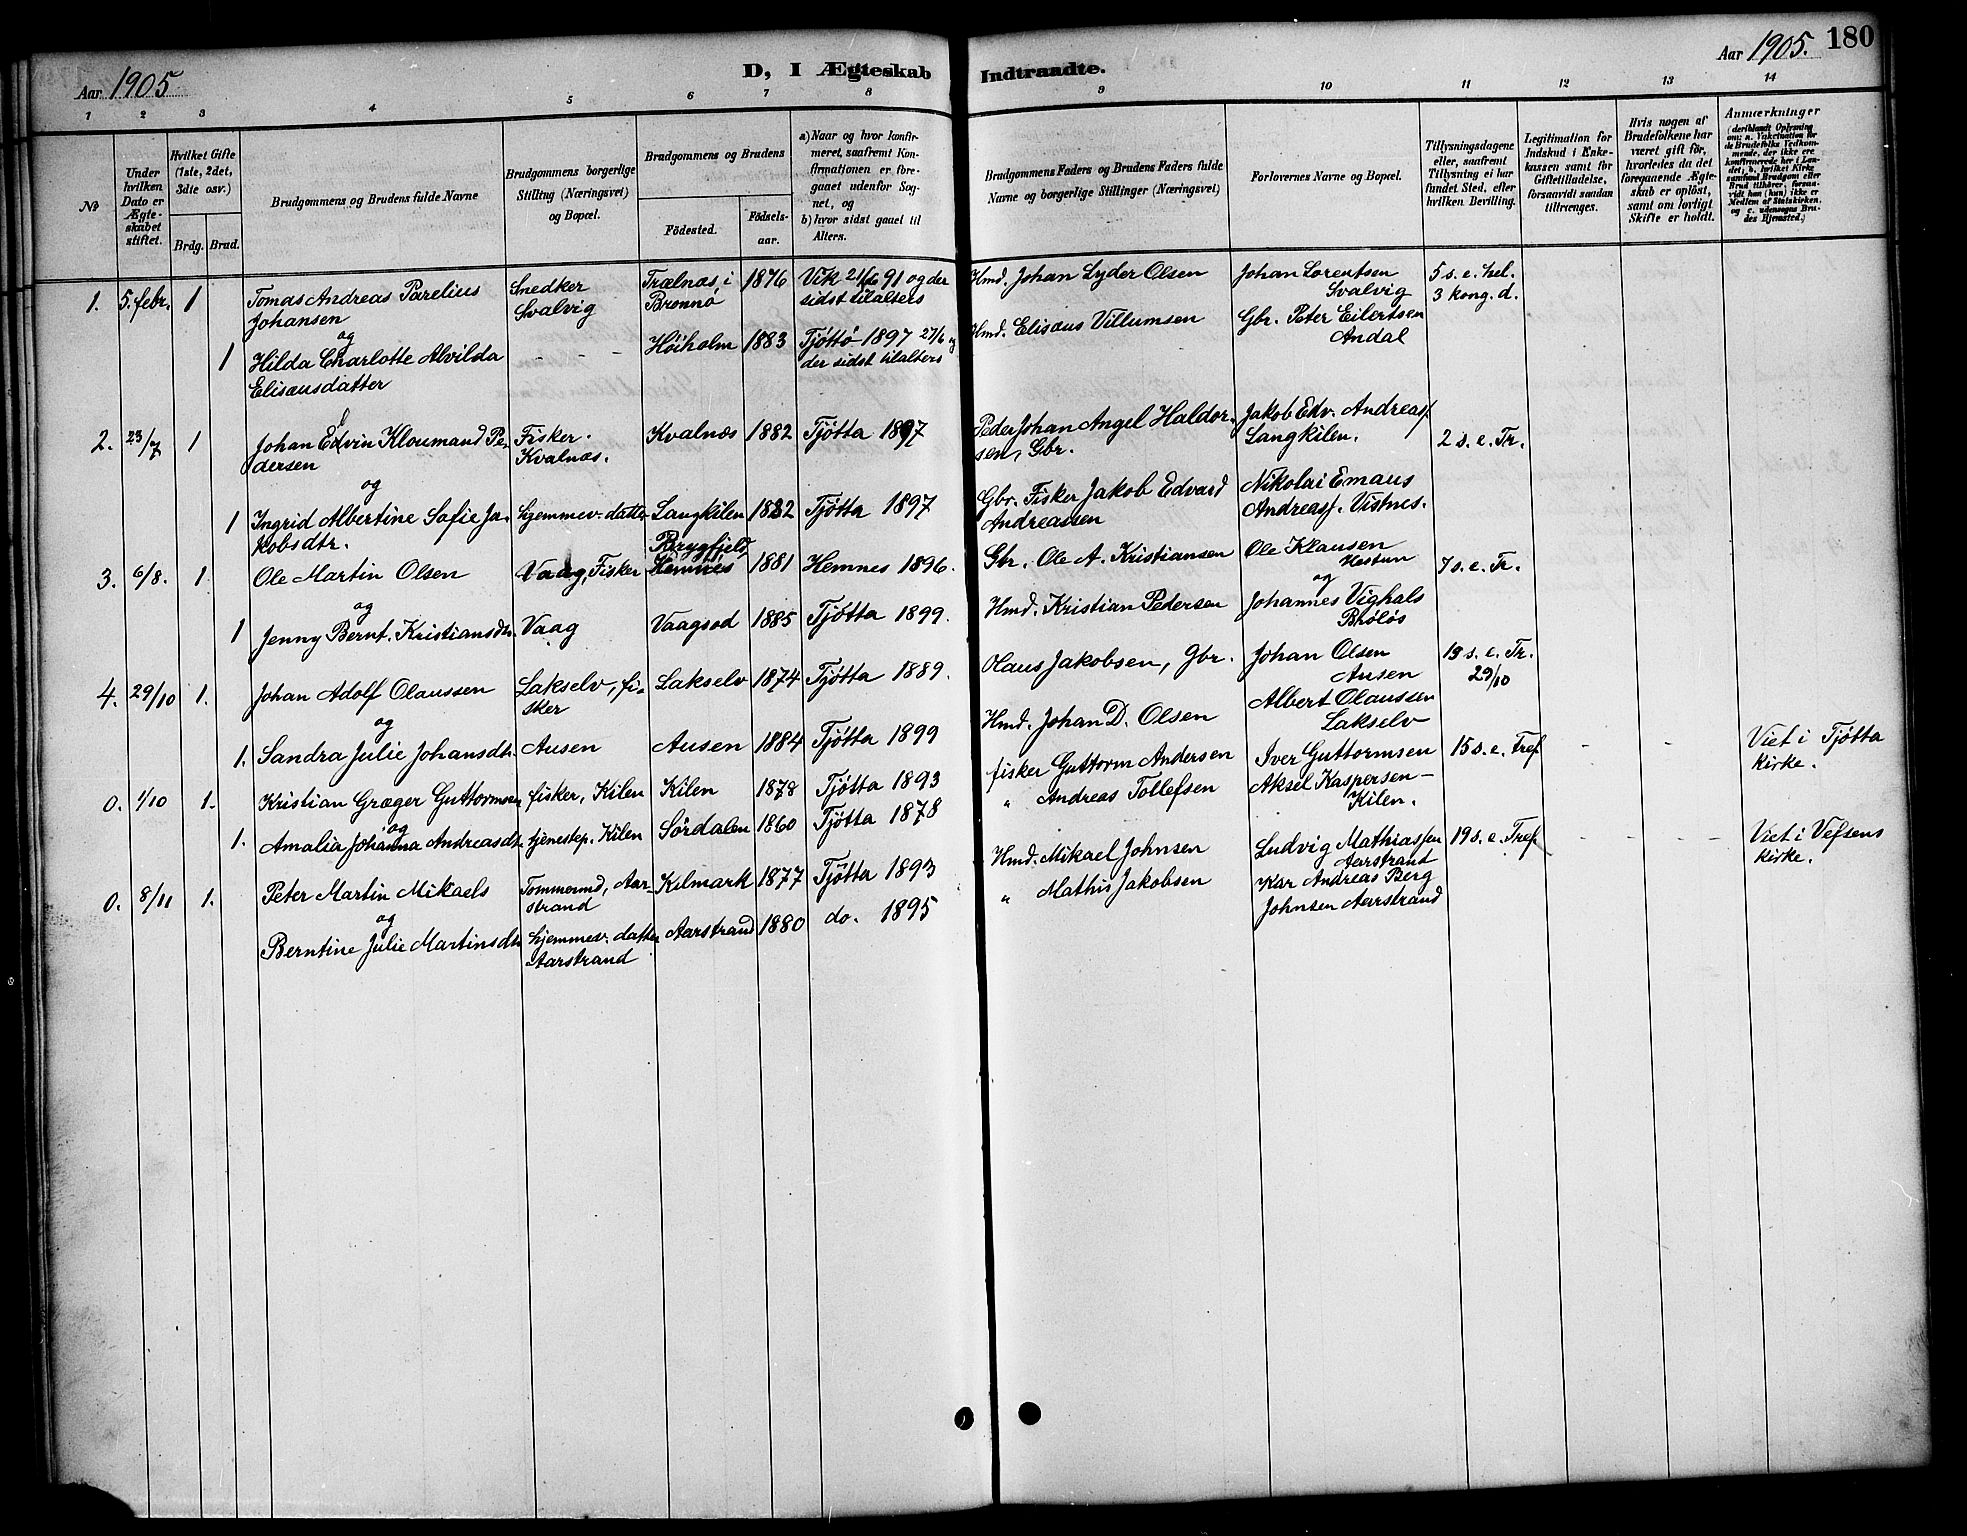 Aar 1905
D, I Ægteskab Indtraadte.
Aar 1905. 180
1 2 3 4 5 6 7 8 9 10 11 12 13 14
No
Under hvilken Dato er Ægteskabet stiftet.
Hvilket Gifte (1ste, 2det, 3dte osv.)
Brdg. Brud.
Brudgommens og Brudens fulde Navne
Brudgommens borgerlige Stilling (Næringsvei) og Bopæl.
Brudgommens og Brudens
Födested. Födselsaar.
a) Naar og hvor konfirmeret, saafremt Konfirmationen er foregaaet udenfor Sognet, og
b) hvor sidst gaaet til Alters.
Brudgommens Faders og Brudens Faders fulde Navne og borgerlige Stillinger (Næringsvei)
Forlovernes Navne og Bopæl.
Tillysningsdagene eller, saafremt Tillysning ei har fundet Sted, efter hvilken Bevilling.
Legitimation for Indskud i Enkekassen samt for Giftetilladelse, forsaavidt saadan tiltrænges.
Hvis nogen af Brudefolkene har været gift för, hvorledes da det foregaaende Ægteskab er oplöst, samt om lovligt Skifte er holdt.
Anmærkninger
(deriblandt Oplysning om: a. Vakcination for de Brudefolks Vedkommende, der ikke ere konfirmerede her i Landet; b. hvilket Kirkesamfund Brudgom eller Brud tilhörer, forsaavidt han (hun) ikke er Medlem af Statskirken, og c. udensogns Brudes Hjemsted.)
1. 5. febr. 1 Tomas Andreas Parelius Johansen
Snedker Svalvig
Trælnæs, i Brønnø 1876
Vik 21/6 91 og der sidst tilalters
Hmd. Johan Lyder Olsen
Johan Lorentsen Svalvig
5 s. e. hel. 3 kong. d.
og
1 Hilda Charlotte Alvilda Elisæusdatter
- - -
Høiholm 1883
Tjøttø 1897 27/6 og der sidst tilalters
Hmd. Elisæus Villumsen
Gbr. Peter Eilertsen Andal
2. 23/7 1 Johan Edvin Kloumand Pedersen
Fisker. Kvalnæs.
Kvalnæs 1882 Tjøtta 1897
Peder Johan Angel Haldorsen, Gbr.
Jakob Edv. Andreass Langkilen.
2 s. e. Tr.
og
1 Ingrid Albertine Sofie Jakobsdtr.
hjemmev. datter
Langkilen 1882 Tjøtta 1897
Gbr. Fisker Jakob Edvard Andreassen
Nikolai Emaus Andreass. Vistnes.
3. 6/8. 1. Ole Martin Olsen
Vaag, Fisker
Brygfjeld, Hemnes 1881 Hemnes 1896.
Gbr. Ole A. Kristiansen
Ole Klausen Hestun
7 s. e. Tr.
og
1 Jenny Bernt. Kristiansdtr.
Vaag Vaagsod 1885 Tjøtta 1899.
Hmd. Kristian Pedersen
og Johannes Vighals
4. 29/10 1. Johan Adolf Olaussen
Lakselv, fisker
Lakselv 1874 Tjøtta 1889.
Olaus Jakobsen, Gbr.
Johan Olsen Ausen
19 s. e. Tr. 29/10
og
1. Sandra Julie Johansdtr.
Ausen Ausen 1884 Tjøtta 1899
Hmd. Johan D. Olsen
Albert Olaussen Lakselv
0. 1/10 1. Kristian Græger Guttormsen
fisker, Kilen Kilen 1878 Tjøtta 1893
fisker Guttorm Andersen
Iver Guttormsen
15 s. e. Tref
- -
Viet i Tjøtta kirke.
og
1. Amalia Johanna Andreasdt.
tjenestep. Kilen Sördalen 1860 Tjøtta 1878
" Andreas Tollefsen
Aksel Kaspersen - Kilen.
0. 8/11 1. Peter Martin Mikaels
Tømmermd, Aarstrand
Kilmark 1877 Tjøtta 1893
Hmd. Mikael Johnsen
Ludvig Mathiassen Aarstrand
19 s. e. Tref
- - -
Viet i Vefsens kirke.
og
Berntine Julie Martinsdtr
hjemmev. datter Aarstrand
Aarstrand 1880 do. 1895
" Mathis Jakobsen
Kar Andreas Berg Johnsen Aarstrand